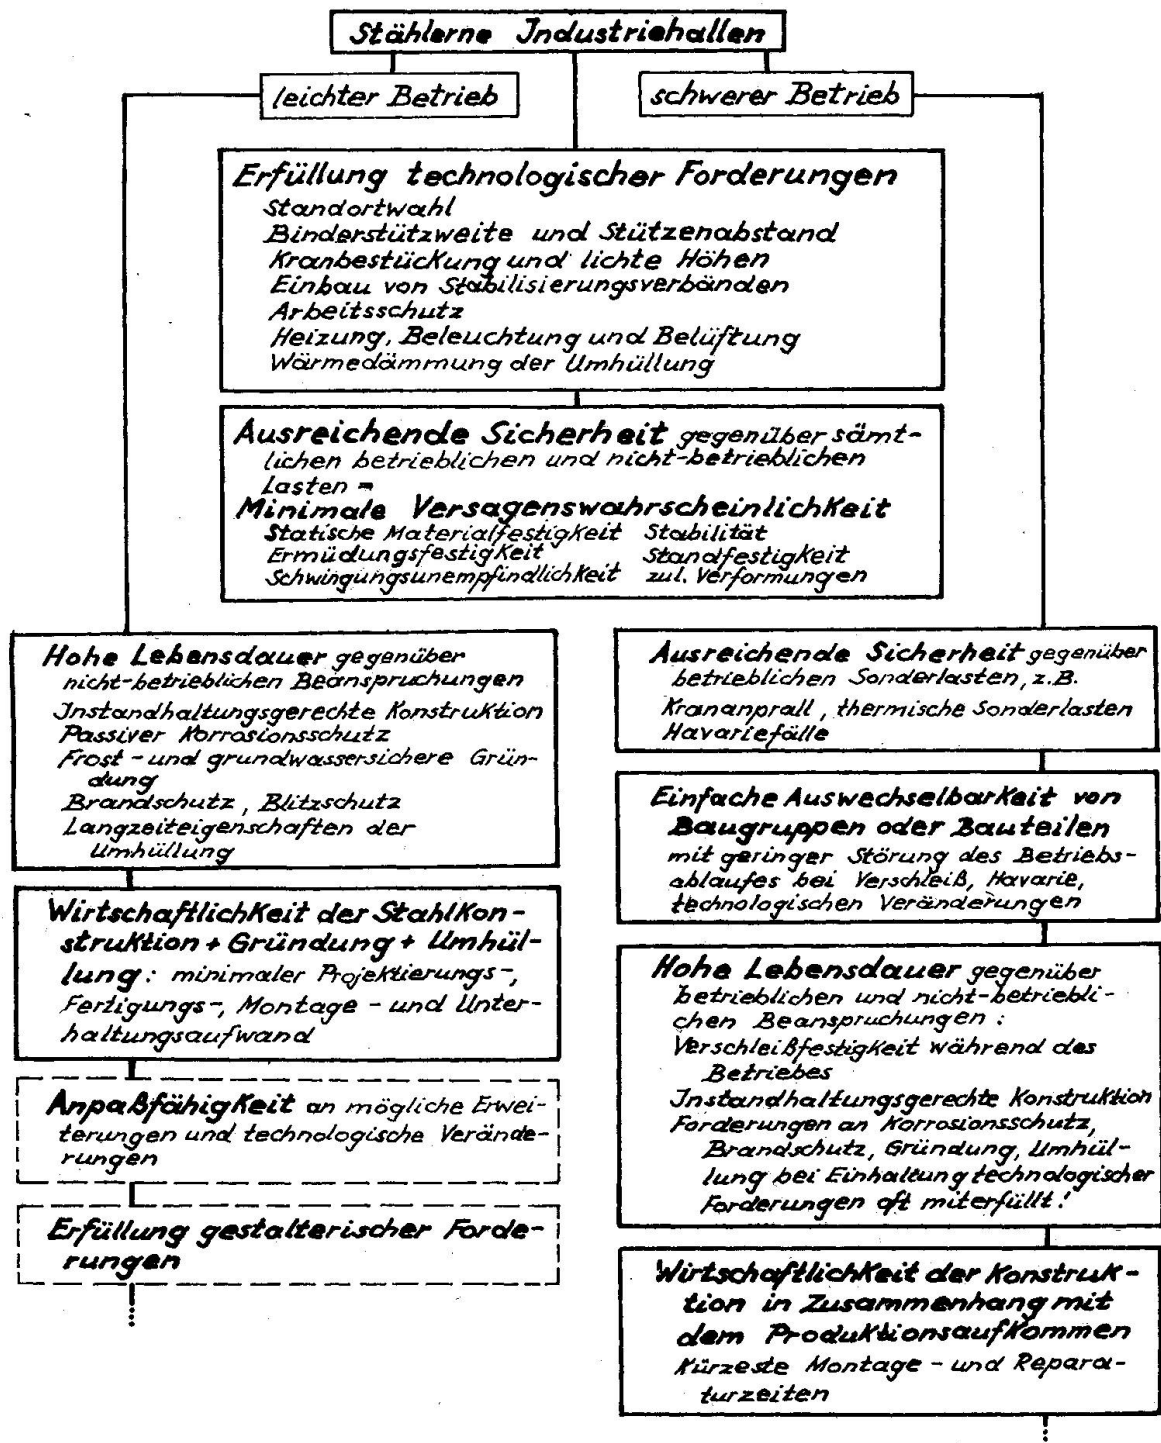 Stählerne Industriehallen
leichter Betrieb
schwerer Betrieb
Erfüllung technologischer Forderungen
Standortwahl
Binderstützweite und Stützenabstand
Kranbestückung und lichte Höhen
Einbau von Stabilisierungsverbänden
Arbeitsschutz
Heizung, Beleuchtung und Belüftung
Wärmedämmung der Umhüllung
Ausreichende Sicherheit gegenüber sämt-
lichen betrieblichen und nicht-betrieblichen
Lasten =
Minimale Versagenswahrscheinlichkeit
Statische Materialfestigkeit Stabilität
Ermüdungsfestigkeit Standfestigkeit
Schwingungsunempfindlichkeit zul. Verformungen
Hohe Lebensdauer gegenüber
nicht-betrieblichen Beanspruchungen
Instandhaltungsgerechte Konstruktion
Passiver Korrosionsschutz
Frost- und grundwassersichere Grün-
dung
Brandschutz, Blitzschutz
Langzeiteigenschaften der
Umhüllung
Wirtschaftlichkeit der Stahlkon-
struktion + Gründung + Umhül-
lung: minimaler Projektierungs-,
Fertigungs-, Montage- und Unter-
haltungsaufwand
Anpaßfähigkeit an mögliche Erwei-
terungen und technologische Verände-
rungen
Erfüllung gestalterischer Forde-
rungen
Ausreichende Sicherheit gegenüber
betrieblichen Sonderlasten, z.B.
Krananprall, thermische Sonderlasten
Havariefälle
Einfache Auswechselbarkeit von
Baugruppen oder Bauteilen
mit geringer Störung des Betriebs-
ablaufes bei Verschleiß, Havarie,
technologischen Veränderungen
Hohe Lebensdauer gegenüber
betrieblichen und nicht-betriebli-
chen Beanspruchungen:
Verschleißfestigkeit während des
Betriebes
Instandhaltungsgerechte Konstruktion
Forderungen an Korrosionsschutz,
Brandschutz, Gründung, Umhül-
lung bei Einhaltung technologischer
Forderungen oft miterfüllt!
Wirtschaftlichkeit der Konstruk-
tion in Zusammenhang mit
dem Produktionsaufkommen
Kürzeste Montage- und Repara-
turzeiten